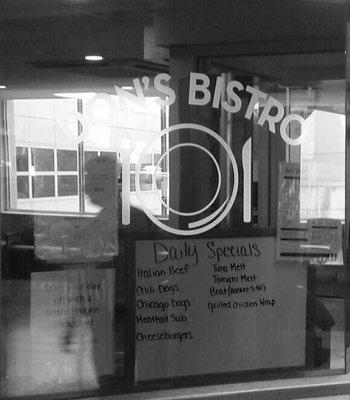 DON'S BISTRO
Daily Specials
Italian Beef
Chili Dogs
Chicago Dogs
Meatball Sub
Cheeseburgers
Tuna Melt
Tomato Melt
Brat (Basket 5.90)
grilled chicken wrap
Start your day
off with a
Bistro Protein
Smoothie!